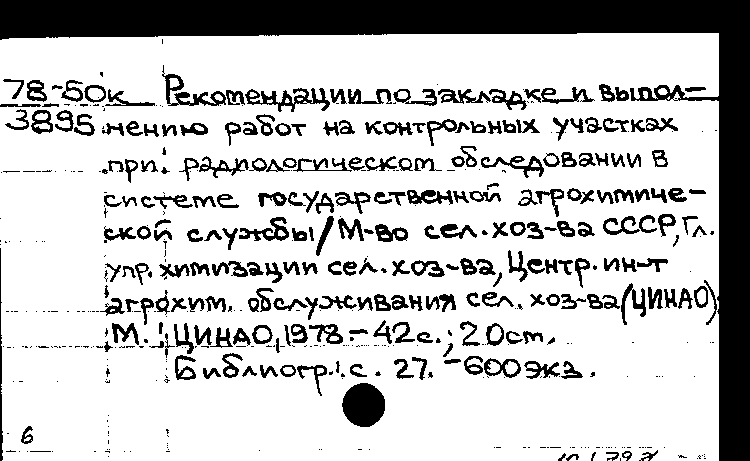 78-50к Рекомендации по закладке и выпол-
3895 нению работ на контрольных участках
при радиологическом обследовании в
системе государственной агрохимиче-
ской службы / М-во сел. хоз-ва СССР, Гл.
упр. химизации сел. хоз-ва, Центр. ин-т
агрохим. обслуживания сел. хоз-ва (ЦИНАО)
М.: ЦИНАО, 1978. - 42 с.; 20 см.
Библиогр.: с. 27. - 600 экз.
6